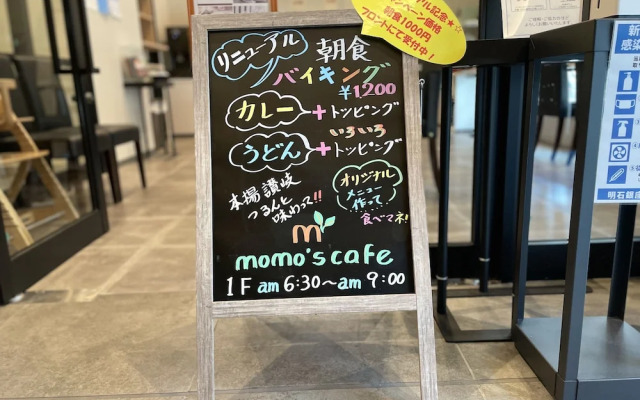 ル記念★☆
ペーン価格
朝食1000円
フロントにて受付中！
リニューアル
朝食
バイキング
¥1,200
カレー+トッピング
いろいろ
うどん+トッピング
本場讃岐
つるんと
味わって!!
オリジナル
メニュー
作って
食べマネ!
m
momo's cafe
1F am 6:30〜am 9:00
新
感染
明石銀座